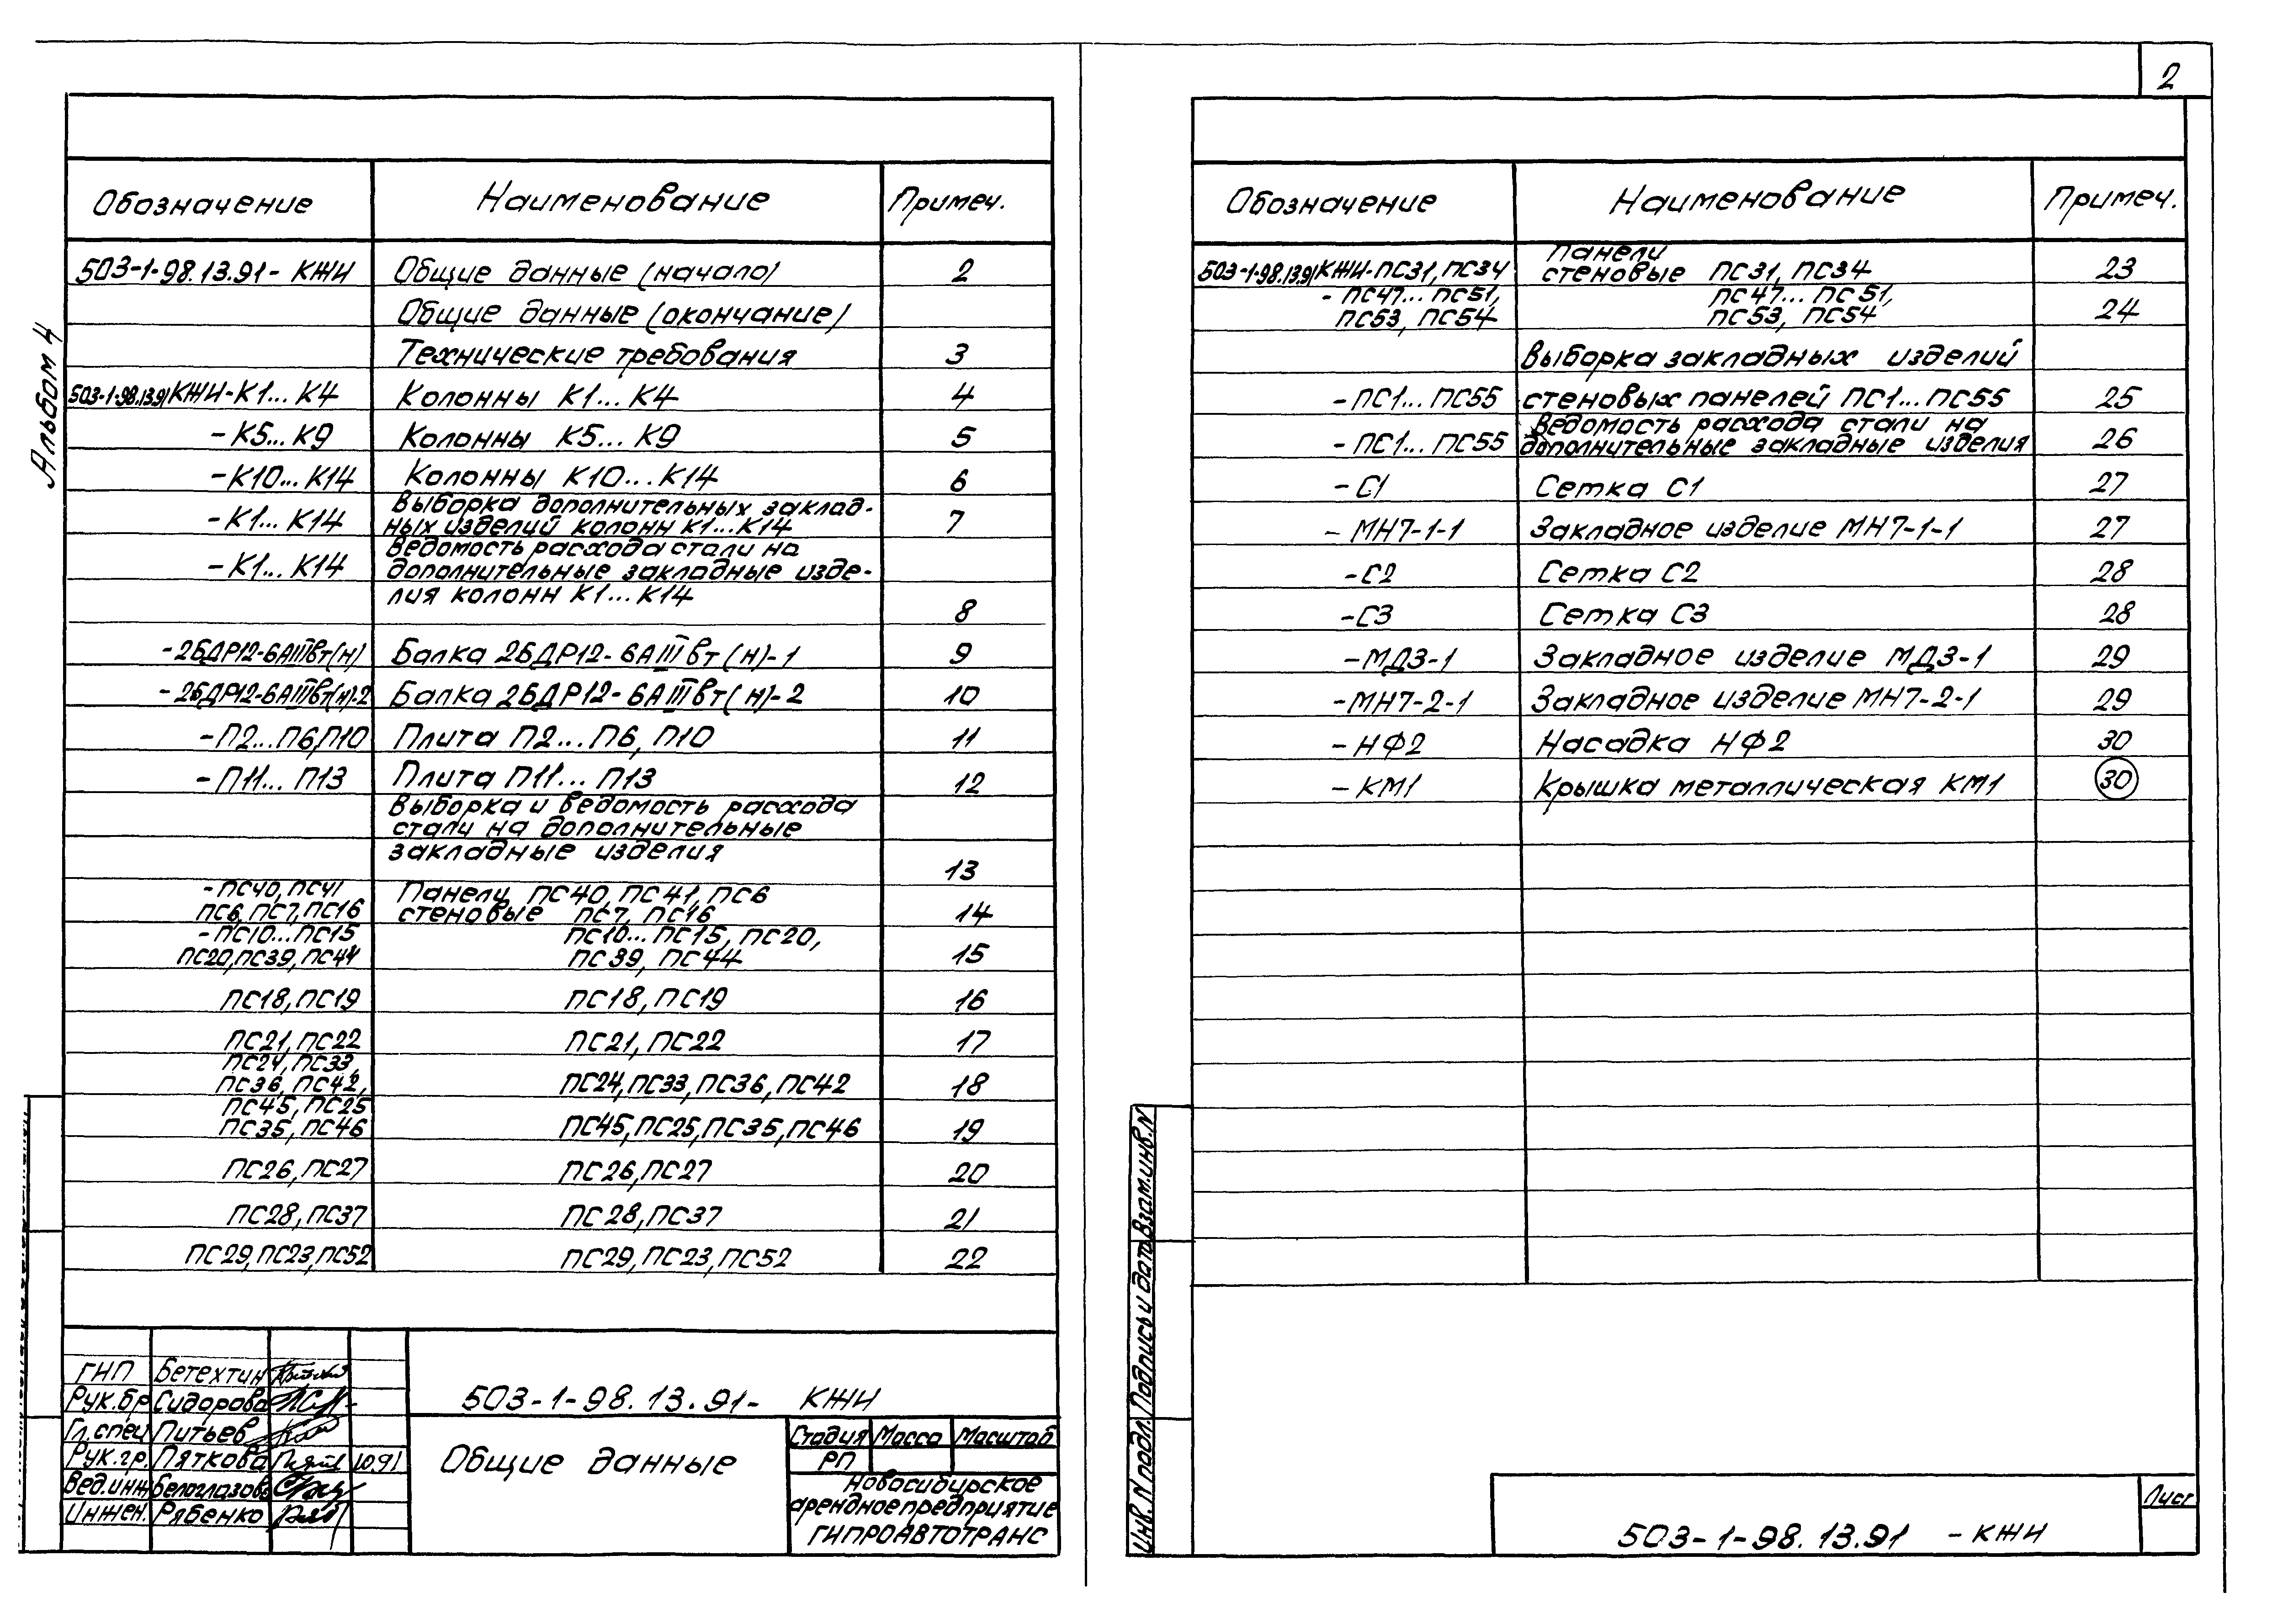 2
Альбом 4
Обозначение Наименование Примеч.
503-1-98.13.91- КЖИ Общие данные (начало) 2
Общие данные (окончание)
Технические требования 3
503-1-98.13.91КЖИ-К1...К4 Колонны К1...К4 4
-К5...К9 Колонны К5...К9 5
-К10...К14 Колонны К10...К14 6
Выборка дополнительных заклад-
-К1...К14 ных изделий колонн К1...К14 7
Ведомость расхода стали на
-К1...К14 дополнительные закладные изде-
лия колонн К1...К14
8
-2БДР12-6АШвт(н) Балка 2БДР12-6АШвт(н)-1 9
-2БДР12-6АШвт(н)-2 Балка 2БДР12-6АШвт(н)-2 10
-П2...П6,П10 Плита П2...П6, П10 11
-П11...П13 Плита П11...П13 12
Выборка и ведомость расхода
стали на дополнительные
закладные изделия
13
-ПС40, ПС41 Панели ПС40, ПС41, ПС6
ПС6, ПС7, ПС16 стеновые ПС7, ПС16 14
-ПС10...ПС15 ПС10...ПС15, ПС20,
ПС20,ПС39, ПС44 ПС39, ПС44 15
ПС18,ПС19 ПС18,ПС19 16
ПС21,ПС22 ПС21, ПС22 17
ПС24,ПС33,
ПС36,ПС42, ПС24,ПС33,ПС36,ПС42 18
ПС45, ПС25
ПС35, ПС46 ПС45,ПС25,ПС35,ПС46 19
ПС26,ПС27 ПС26,ПС27 20
ПС28,ПС37 ПС28,ПС37 21
ПС29,ПС23,ПС52 ПС29,ПС23,ПС52 22
ГНП Бетехтин
Рук.бр Сидорова
Гл.спец Питьев
Рук.гр. Пяткова 10.91
Вед.инж Белоглазова
Инжен. Рябенко
503-1-98.13.91- КЖИ
Общие данные
Стадия Масса Масштаб
РП
Новосибирское
арендное предприятие
ГИПРОАВТОТРАНС
Обозначение Наименование Примеч.
Панели
503-1-98.13.91КЖИ-ПС31,ПС34 стеновые ПС31, ПС34 23
-ПС47...ПС51, ПС47...ПС51,
ПС53, ПС54 ПС53, ПС54 24
Выборка закладных изделий
-ПС1...ПС55 стеновых панелей ПС1...ПС55 25
Ведомость расхода стали на
-ПС1...ПС55 дополнительные закладные изделия 26
-С1 Сетка С1 27
-МН7-1-1 Закладное изделие МН7-1-1 27
-С2 Сетка С2 28
-С3 Сетка С3 28
-МД3-1 Закладное изделие МД3-1 29
-МН7-2-1 Закладное изделие МН7-2-1 29
-НФ2 Насадка НФ2 30
-КМ1 Крышка металлическая КМ1 30
Инв. N подл. Подпись и дата Взам.инв.N
503-1-98.13.91 -КЖИ
Лист